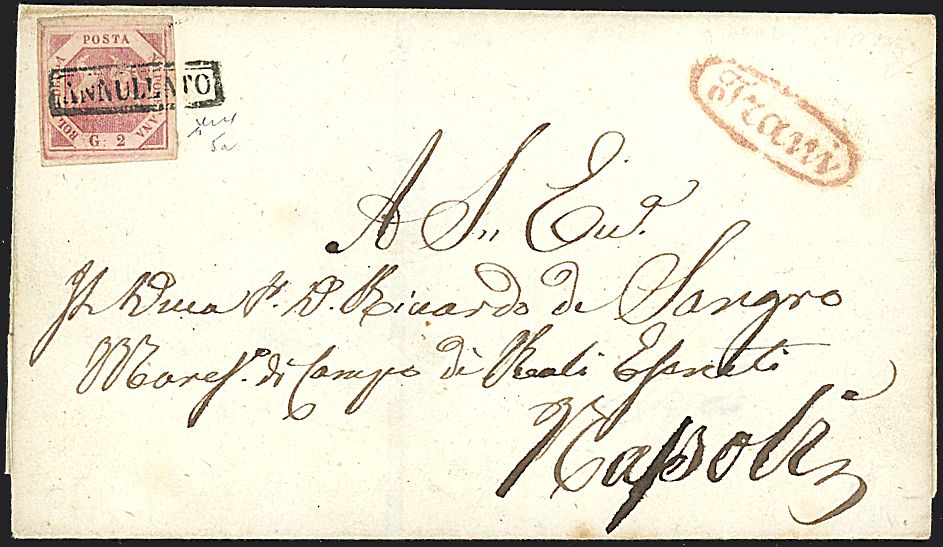 POSTA
BOLLO DELLA
NAPOLETANA
G. 2
ANNULLATO
Trani
5a
A S. Ecc.
Il Duca D. Riccardo de Sangro
Mares. di Campo di Reali Eserciti
Napoli